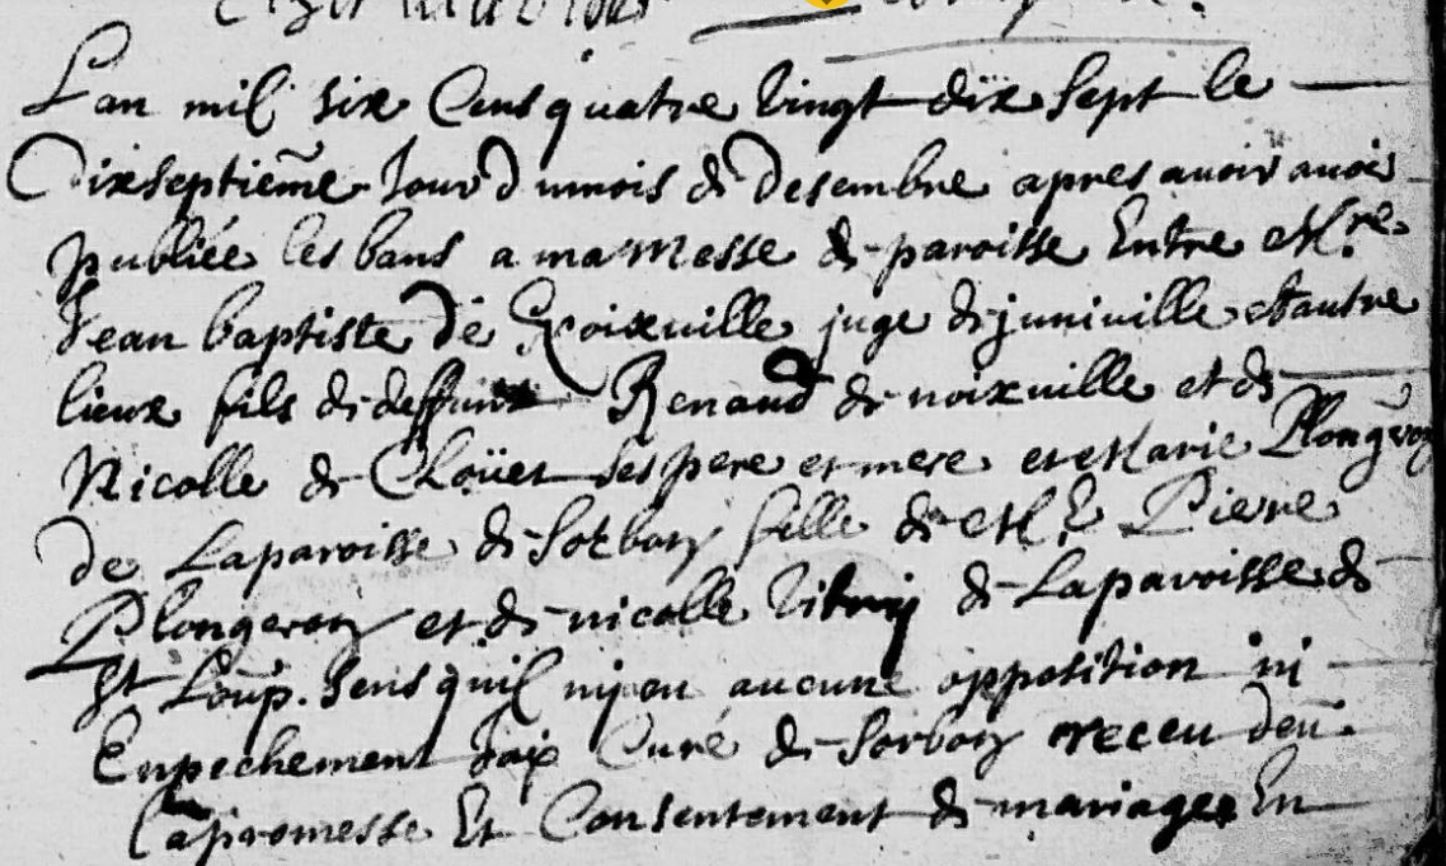 Lan mil six Cens quatre Vingt dix Sept le
Dixseptième Jour dumois de Desembre apres avoir avoir
publiée les bans a ma Messe de paroisse Entre Mre
Jean baptiste De Croixuille juge de juniuille et autre
lieux fils de deffunt Renaud de noixuille et de
Nicolle de Cloüet ses pere et mere et Marie Plongeron
de Laparoisse de Sorbon fille de Me Pierre
Plongeron et de nicolle Vitry de Laparoisse de
St Loup. Sens quil ny en aucune opposition ni
Enpechement Jaix Curé de Sorbon receu deu
la promesse Et Consentement de mariage En